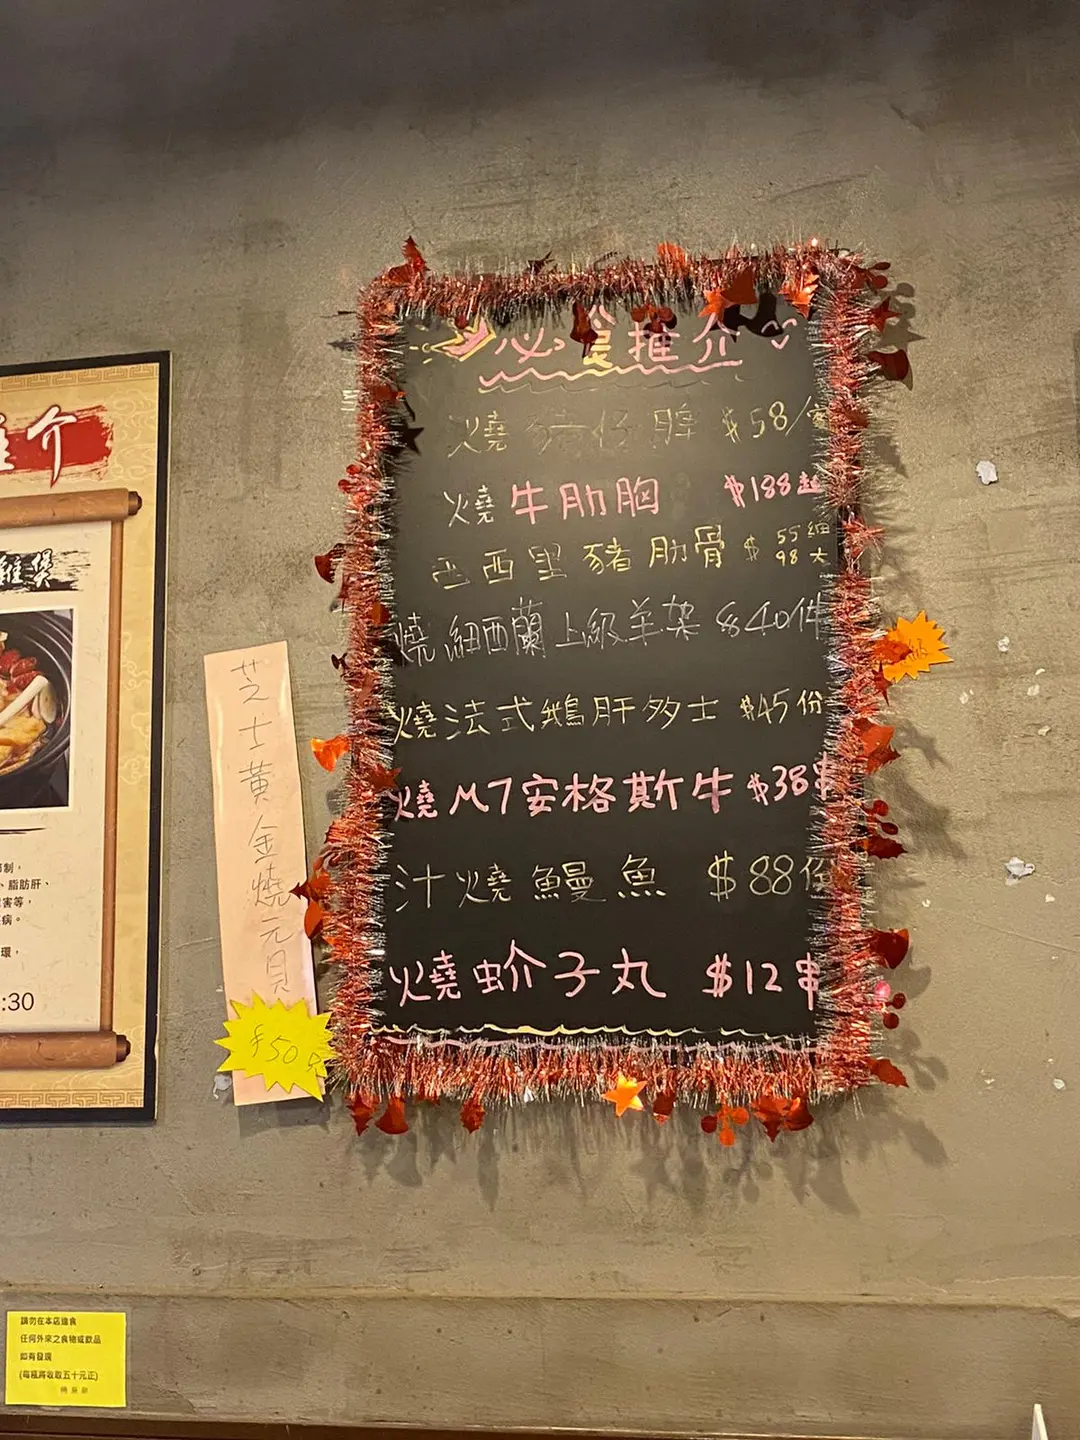 介
雞煲
制，
、脂肪肝、
害等，
病。
環，
:30
芝士黃金燒元貝
$50
必食推介
燒 仔髀 $58/
燒牛肋胸 $188起
西西里豬肋骨 $55細
98大
燒紐西蘭上級羊架 $40件
燒法式鵝肝多士 $45份
燒M7安格斯牛 $38串
汁燒鰻魚 $88份
燒蚧子丸 $12串
請勿在本店進食
任何外來之食物或飲品
如有發現
(每瓶將收取五十元正)